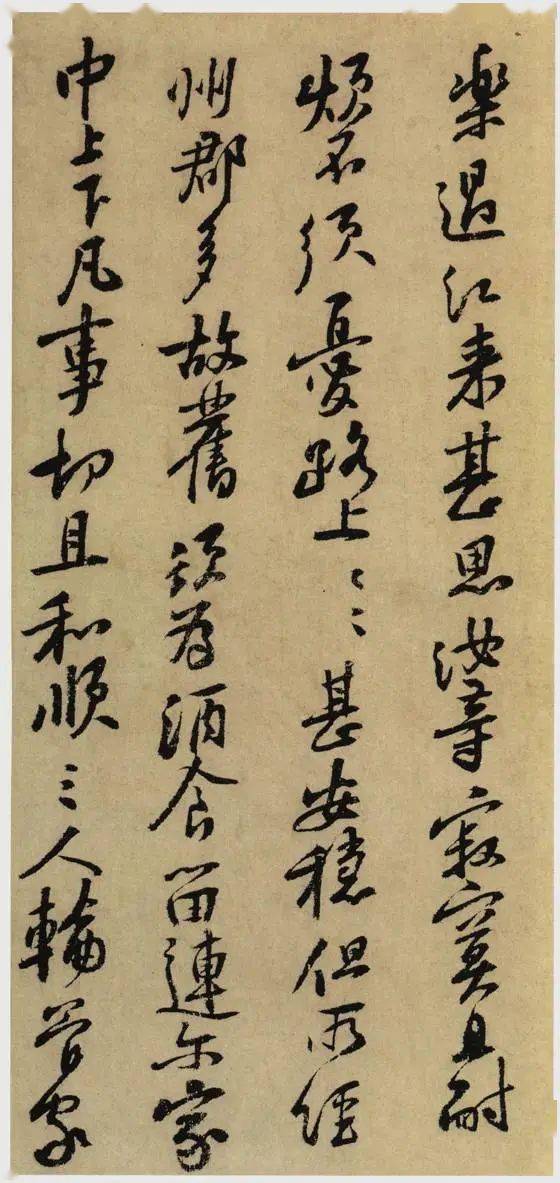 樂過江來甚思汝等寂寞且耐
煩不須憂路上〻〻甚安穩但所經
州郡多故舊須為酒食留連尓家
中上下凡事切且和順三人輪管家